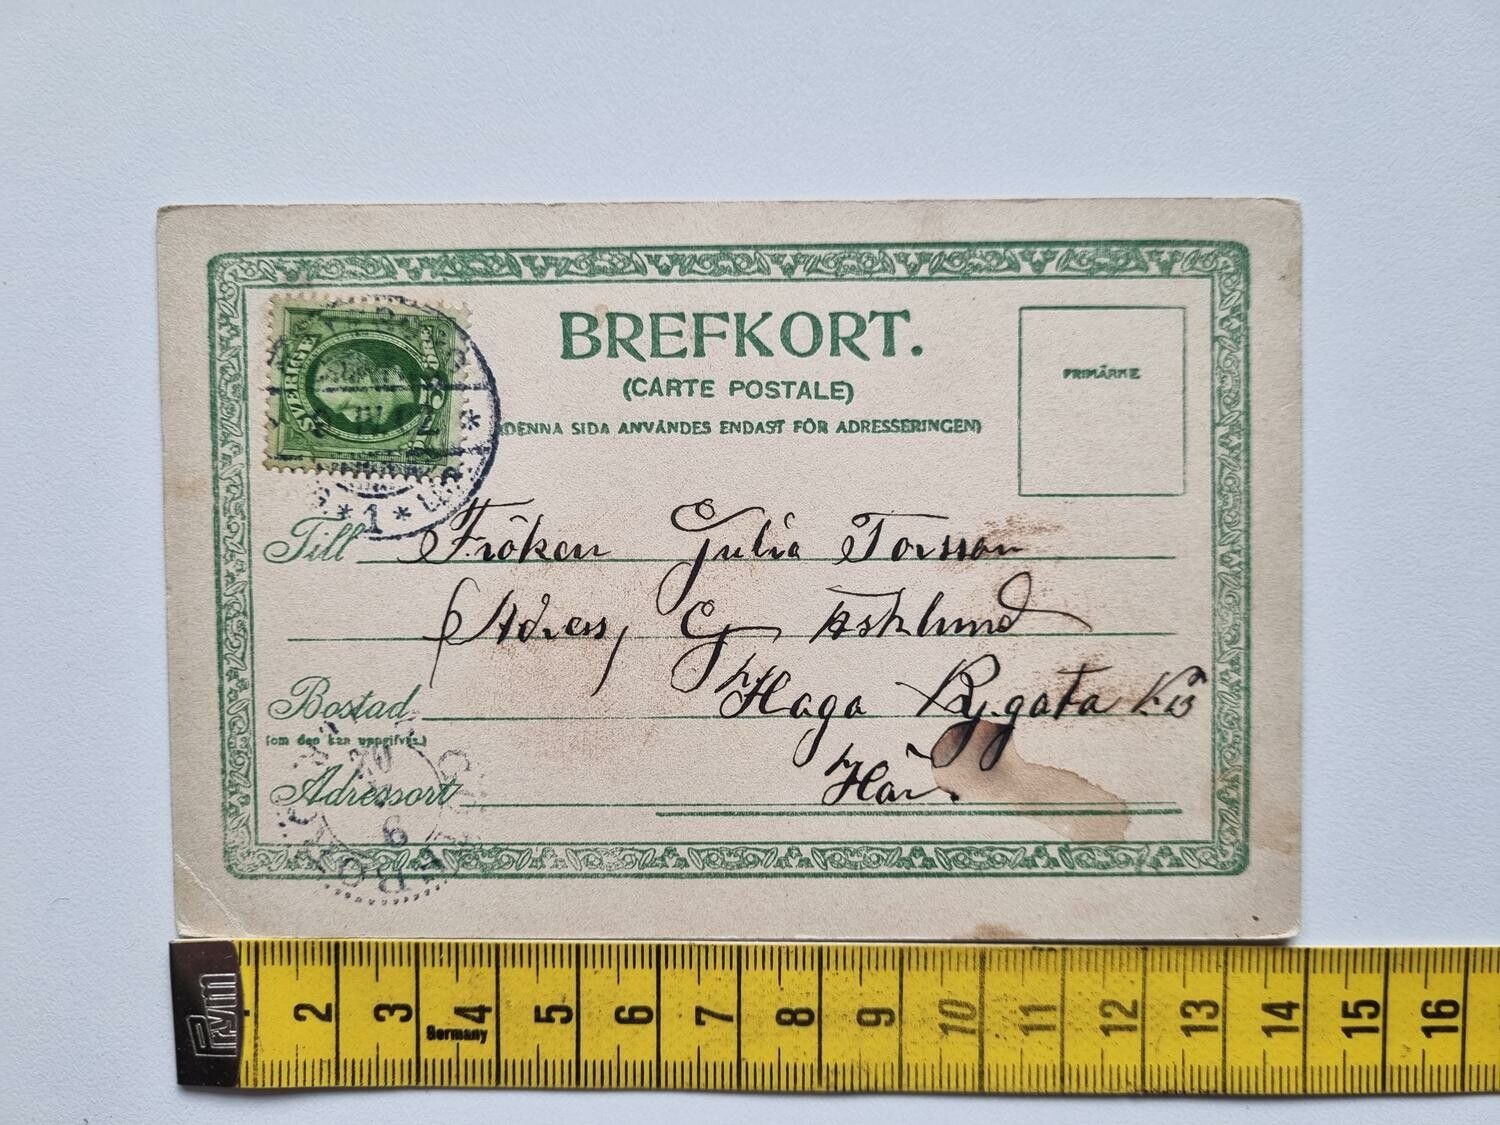 BREFKORT.
(CARTE POSTALE)
(DENNA SIDA ANVÄNDES ENDAST FÖR ADRESSERINGEN)
FRIMÄRKE
SVERIGE
* 1 *
Till Fröken Julia Torsson
Adress, G Asklund
Haga Ny.gata
Bostad
(om den kan uppgifvas.)
Här.
Adressort
Prym
2 3 4 5 6 7 8 9 10 11 12 13 14 15 16
Germany